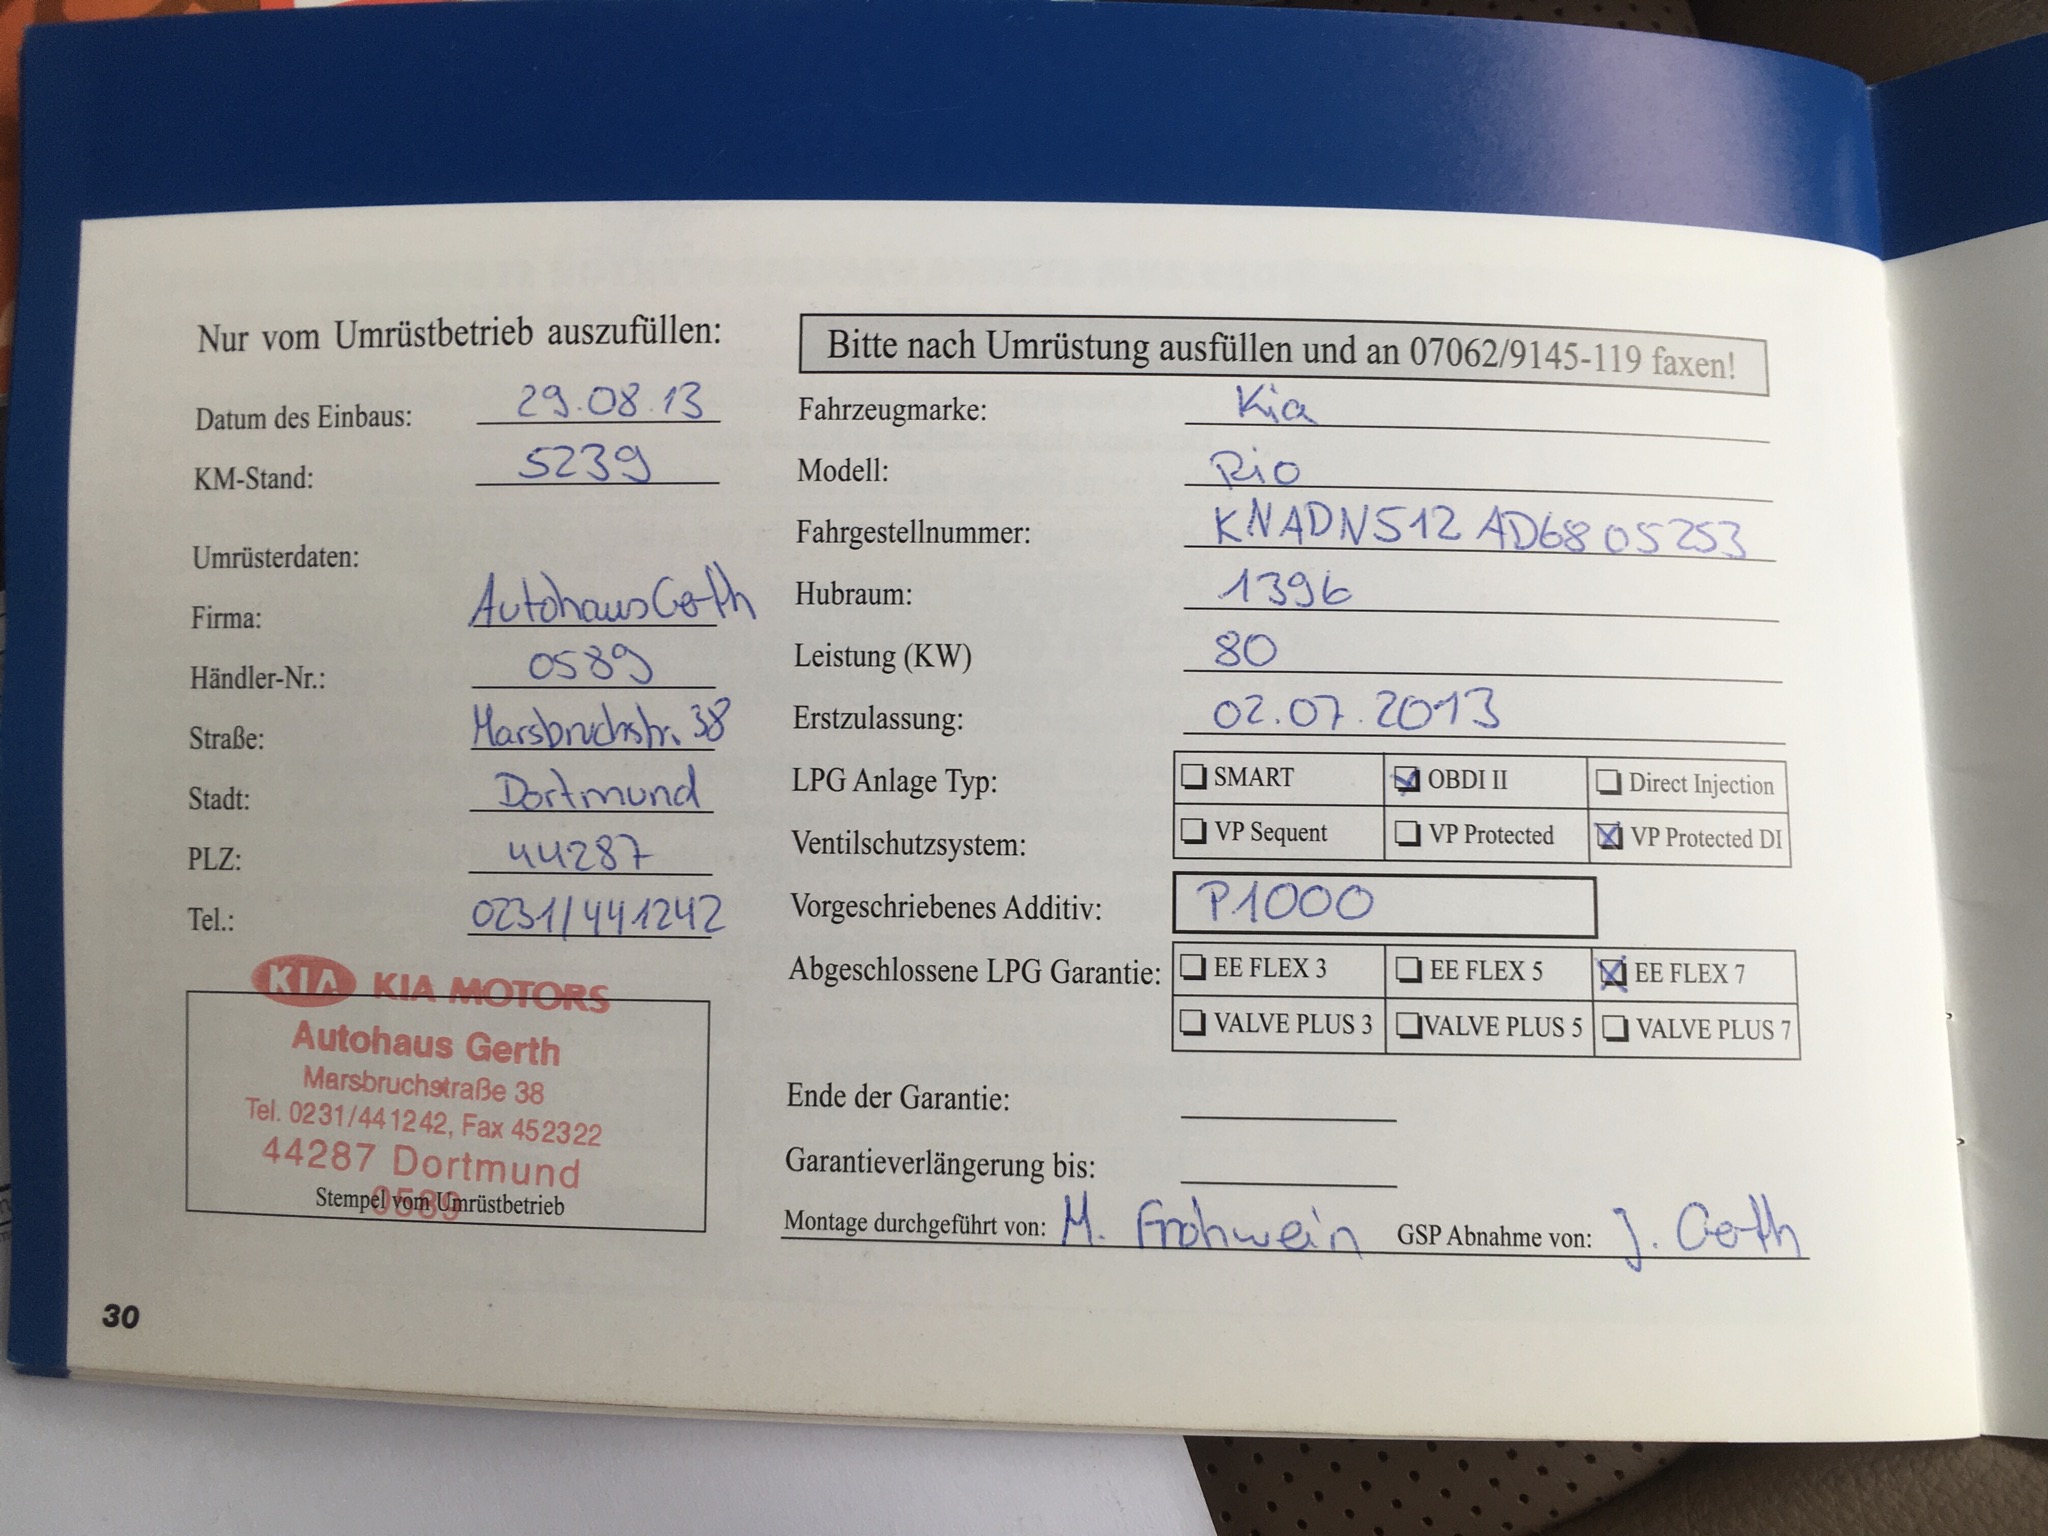 Nur vom Umrüstbetrieb auszufüllen:
Datum des Einbaus: 29.08.13
KM-Stand: 5239
Umrüsterdaten:
Firma: Autohaus Gerth
Händler-Nr.: 0589
Straße: Marsbruchstr. 38
Stadt: Dortmund
PLZ: 44287
Tel.: 0231/441242
KIA KIA MOTORS
Autohaus Gerth
Marsbruchstraße 38
Tel. 0231/441242, Fax 452322
44287 Dortmund
0589
Stempel vom Umrüstbetrieb
30
Bitte nach Umrüstung ausfüllen und an 07062/9145-119 faxen!
Fahrzeugmarke: Kia
Modell: Rio
Fahrgestellnummer: KNADN512AD6805253
Hubraum: 1396
Leistung (KW) 80
Erstzulassung: 02.07.2013
LPG Anlage Typ: SMART OBDI II Direct Injection
Ventilschutzsystem: VP Sequent VP Protected VP Protected DI
Vorgeschriebenes Additiv: P1000
Abgeschlossene LPG Garantie: EE FLEX 3 EE FLEX 5 EE FLEX 7
VALVE PLUS 3 VALVE PLUS 5 VALVE PLUS 7
Ende der Garantie:
Garantieverlängerung bis:
Montage durchgeführt von: M. Frohwein GSP Abnahme von: J. Gerth